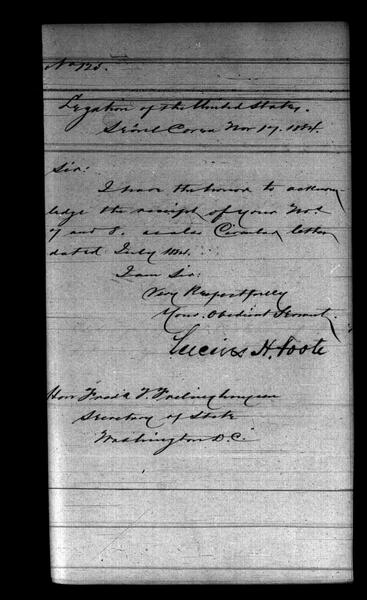 No 125.
Legation of the United States.
Séoul Corea Nov 17. 1884.
Sir:
I have the honor to acknow-
ledge the receipt of your Nos.
7 and 8. also Circular letter
dated July 1884.
I am Sir:
Very Respectfully
Your Obedient Servant.
Lucius H. Foote
Hon Fredk T. Frelinghuysen
Secretary of State
Washington D.C.